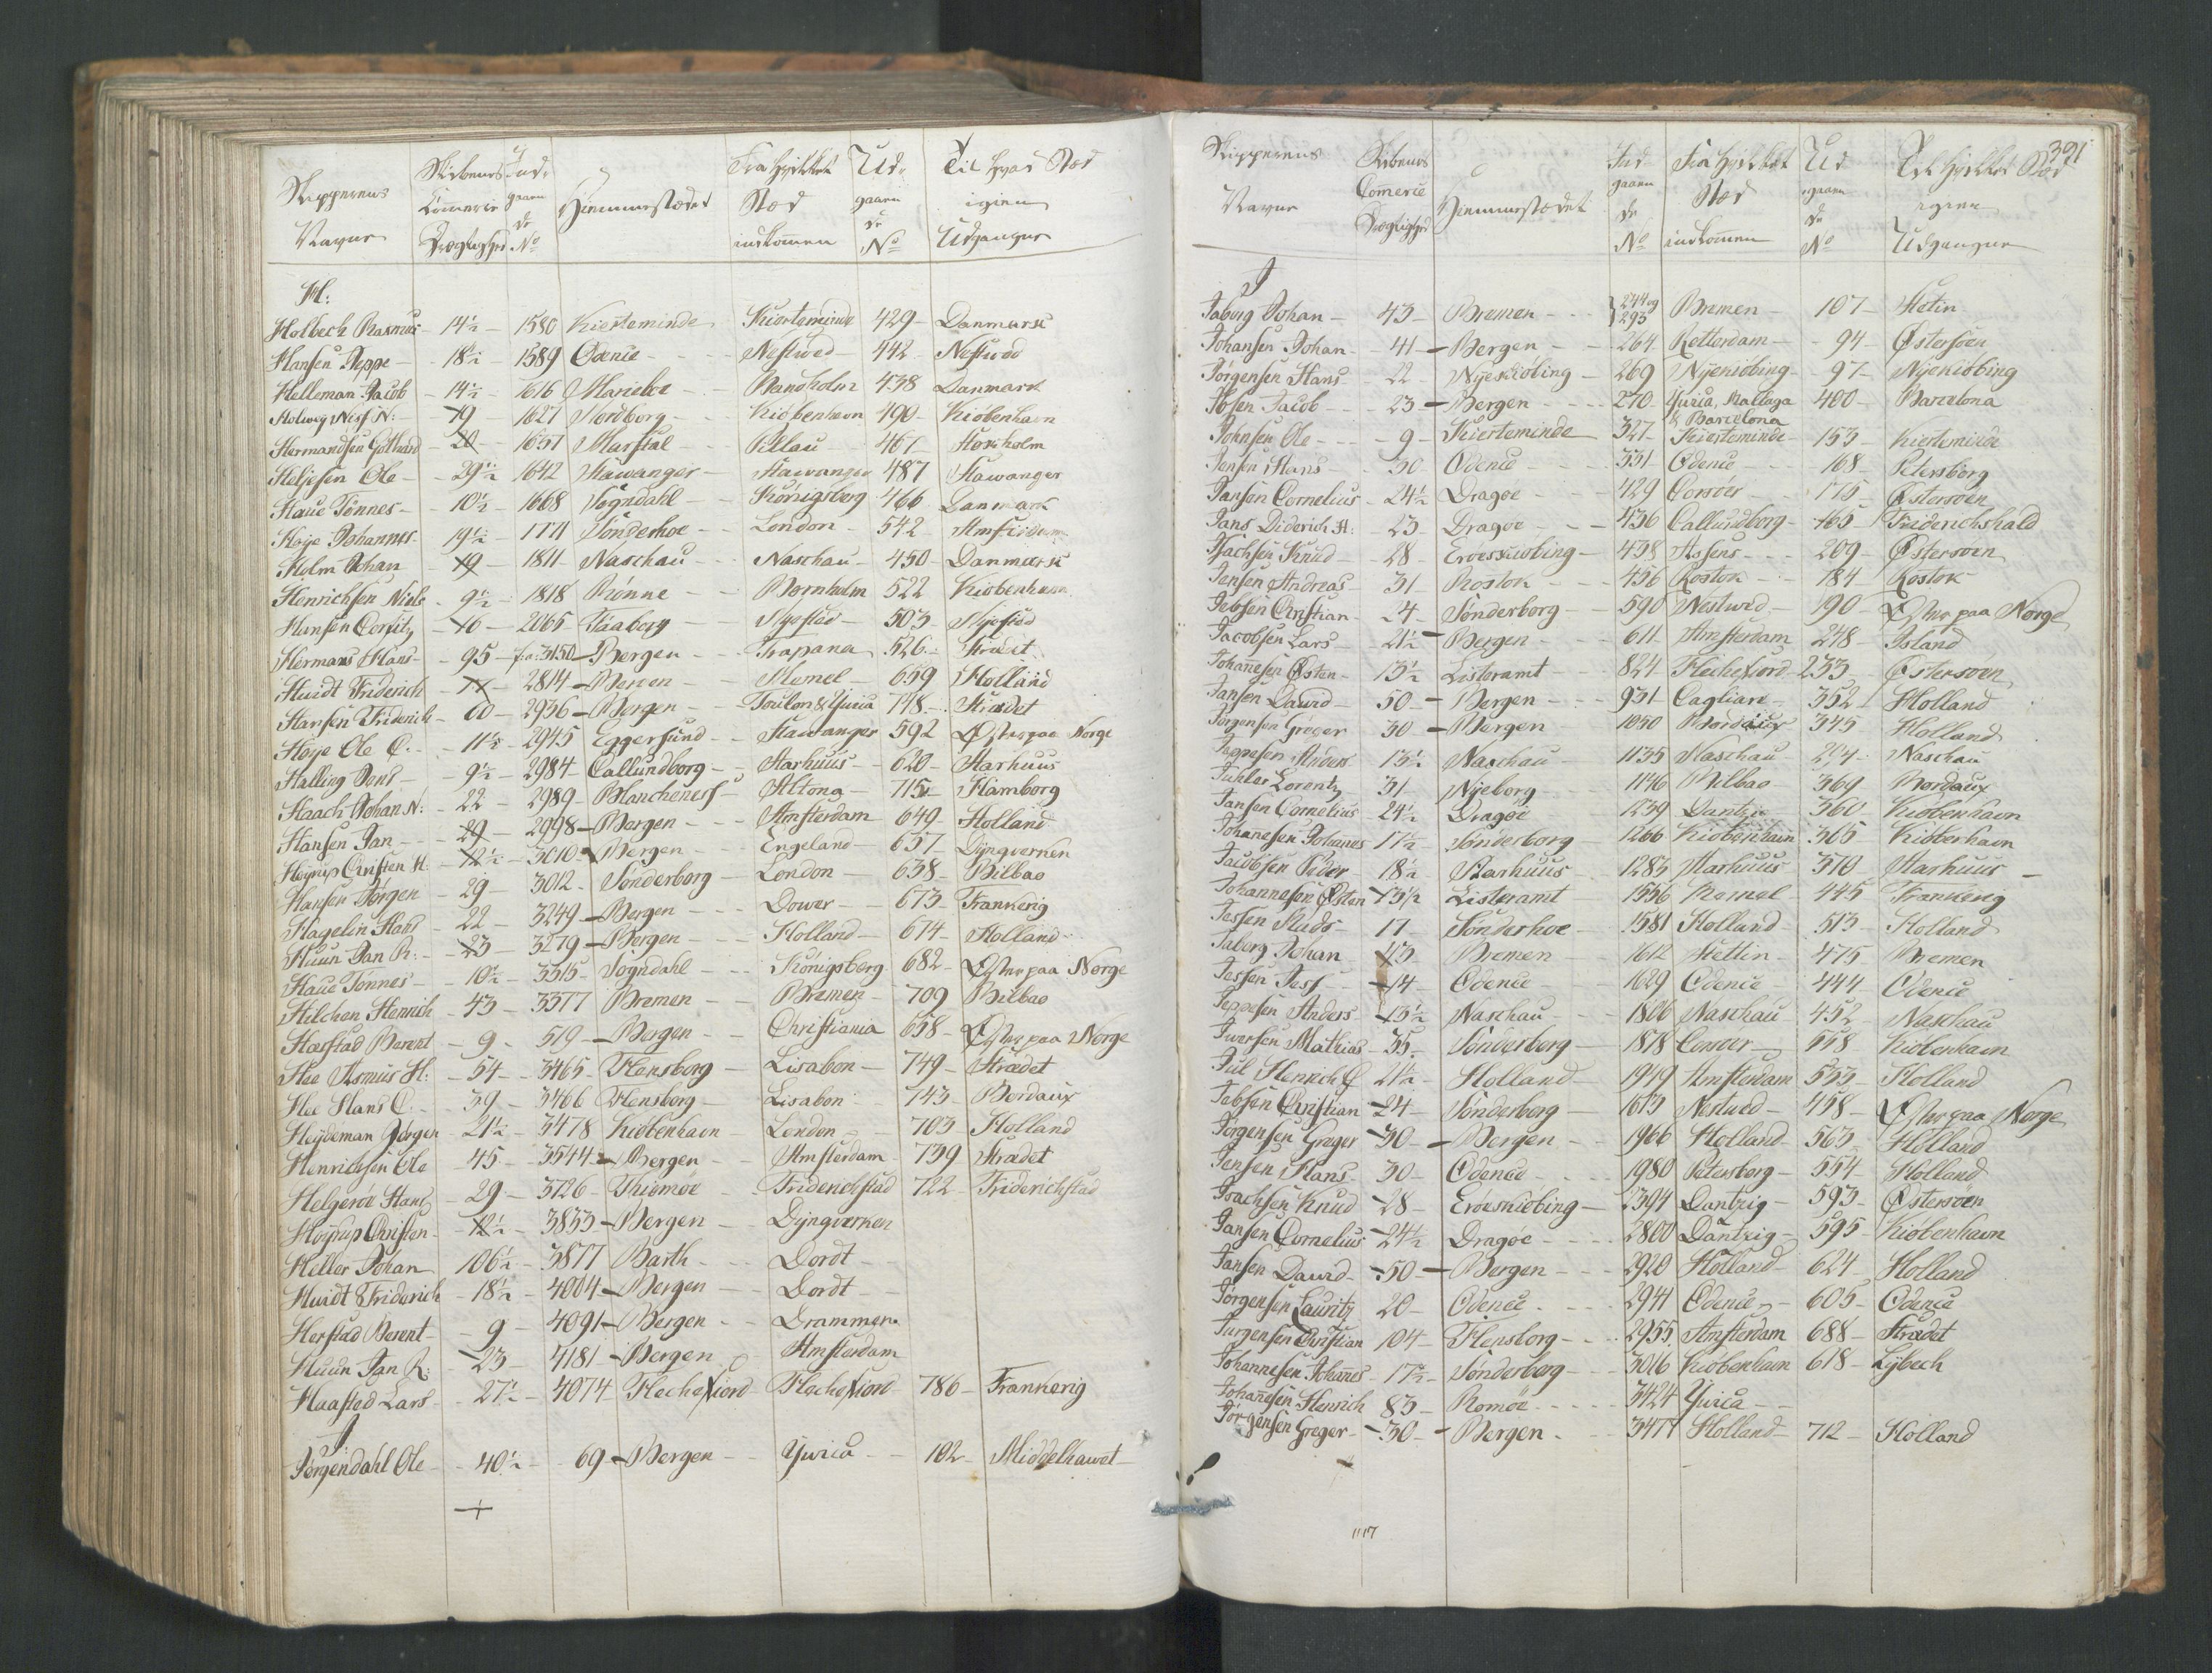 Skipperens Navne | Skibenes Comercie Drægtighed | Ind gaaen de No | Hiemmestædet | Fra hvilket Stæd indkommen | Ud gaaen de No | Til hvad Stæd igien Udgangne
H:
Holbech Rasmus - 14½ - 1580 Kierteminde - Kierteminde 429 - Danmark
Hansen Jeppe - 18½ - 1589 Odence - Nestwed - 442 - Nestwed
Helleman Jacob - 14½ - 1616 Marieboe - Bandholm 438 Danmark
Holweg Niss N: - 19 - 1627 Nordborg - Kiöbenhavn 490 - Kiöbenhavn
Hermandsen Gothard - 20 - 1637 Marstal - Pillau - 467 - Stockholm
Heljesen Ole - 29½ - 1642 Stawanger - Stawanger 487 Stawanger
Haue Tönnes - 10½ - 1668 Sogndahl - Königsberg 466 Danmark
Høye Johannes - 19½ - 1771 Sönderhoe - London - 542 - Amsterdam
Holm Johan - 19 - 1811 - Naschau - Naschau - 450 - Danmark
Henrichsen Niels - 9½ - 1818 Rönne - Bornholm 522 Kiöbenhavn
Hansen Corfitz - 16 - 2065 - Faaborg - Nysted - 503 - Nysted
Hermans Hans - 95 - 3150 - Bergen - Trapana 526 - Strædet
Huidt Friderich - 2814 - Bergen - Memel - 659 Holland
Hansen Friderich - 60 - 2936 - Bergen - Toulon & Yvica 718 - Strædet
Høye Ole C. - 11½ - 2945 Eggersund - Stawanger 592 Østerpaa Norge
Halling Jens - 9½ - 2984 - Callundborg - Aarhuus - 620 - Aarhuus
Haach Johan N: - 22 - 2989 - Blanchenese - Altona - 715 - Hamborg
Hansen Jan - 29 - 2998 - Bergen - Amsterdam 649 - Holland
Høyrup Christen H. - 12½ - 3010 - Bergen - Engeland - 657 - Dyngverken
Hansen Jørgen - 29 - 3012 - Sönderborg - London - 638 - Bilbao
Hagelin Hans - 22 - 3249 - Bergen - Dower - 673 - Frankerig
Huun Jan R: - 23 - 3279 - Bergen - Holland - 674 - Holland
Haue Tönnes - 10½ - 3315 - Sogndahl - Königsberg 682 - Østerpaa Norge
Hilchen Henrich - 43 - 3377 Bremen - Bremen - 709 Bilbao
Harstad Berent - 9 - 519 - Bergen - Christiania 658 - Østerpaa Norge
Hee Asmus H: - 54 - 3465 - Flensborg - Lisabon - 749 - Strædet
Hee Hans C. - 39 - 3466 Flensborg - Lisabon - 743 - Bordaux
Heydeman Jørgen - 21½ - 3478 Kiöbenhavn - London - 703 - Holland
Henrichsen Ole - 45 - 3544 - Bergen - Amsterdam - 739 Strædet
Helgeröe Hans - 29 - 3726 - Thiömøe - Friderichstad 722 - Friderichstad
Høyrup Christen - 12½ - 3833 - Bergen - Dyngverken
Heller Johan - 106½ - 3877 Barth - Dordt
Huidt Friderich - 18½ - 4004 - Bergen - Dordt
Herstad Berent - 9 - 4091 - Bergen - Drammen
Huun Jan R: - 23 - 4181 - Bergen - Amsterdam
Haastad Lars - 27½ - 4074 - Flechefiord - Flechefiord - 786 - Frankerig
J
Jørgendahl Ole - 40½ - 69 - Bergen - Yvica - 102 - Middelhawet
391
Skipperens Navne | Skibenes Comercie Drægtighed | Hiemmestædet | Ind gaaen de No | Fra hvilket Stæd indkommen | Ud gaaen de No | Til hvilket Stæd igien Udgangne
J
Jaborg Johan - 43 - Bremen - 244 og 293 Bremen - 107 - Stetin
Johansen Johan - 41 - Bergen - 264 Rotterdam - 94 - Østersöen
Jørgensen Hans - 22 - Nyeskiöbing - 269 Nyeniöbing - 97 - Nyekiöbing
Ibsen Jacob - 23 - Bergen - 270 Yvica, Mallaga & Barcelona 400 - Barcelona
Johnsen Ole - 9 - Kierteminde - 327 - Kierteminde - 153 - Kierteminde
Jensen Hans - 30 - Odence - 331 - Odence - 168 - Petersborg
Jansen Cornelius - 24½ - Dragøe - 429 Corsöer - 175 - Østersöen
Jans Diderich H: - 23 - Dragøe - 436 Callundborg - 165 - Friderichshald
Isachsen Knud - 28 - Eroeskiöbing - 438 Assens - 209 - Østersöen
Jensen Andreas - 31 - Rostok - 456 Rostok - 184 Rostok
Jebsen Christian - 24 - Sønderborg - 590 Nestwed - 190 - Østerpaa Norge
Jacobsen Lars - 21½ - Bergen - 611 - Amsterdam 248 - Island
Johannesen Østen - 13½ Listeramt - 824 - Flechefiord - 233 - Østersöen
Jansen David - 50 - Bergen - 931 Cagliari - 352 Holland
Jørgensen Gröger 30 - Bergen 1050 Bordaux 345 Holland
Jeppesen Anders 13½ Naschau - 1135 Naschau - 274 - Naschau
Juhler Lorentz 31 - Nyeborg - 1146 Bilbao - 369 Bordaux
Jansen Cornelius 24½ Dragøe 1239 Dantzig - 360 Kiöbenhavn
Johannesen Johannes 17½ - Sønderborg - 1266 Kiöbenhavn 365 Kiöbenhavn
Jacobsen Peder - 18½ - Aarhuus 1283 Aarhuus - 310 - Aarhuus
Johannesen Østen 13½ Listeramt - 1556 Memel - 445 Frankerig
Jessen Mads - 17 - Sönderhoe - 1581 Holland - 513 - Holland
Jaborg Johan - 43 - Bremen - 1612 Stettin - 475 - Bremen
Jessen Jess - 14 - Odence - 1629 Odence - 444 - Odence
Jeppesen Anders - 13½ Naschau - 1806 Naschau 452 - Naschau
Iwersen Mathias - 35 - Sønderborg - 1878 Corsöer - 558 Kiöbenhavn
Jul Henrich C 21½ - Holland - 1949 Amsterdam 533 - Holland
Jebsen Christian - 24 - Sønderborg - 1673 Nestwed - 458 - Østerpaa Norge
Jørgensen Greger - 30 - Bergen - 1966 Holland 563 - Holland
Jensen Hans - 30 - Odence - 1980 Petersborg - 554 Holland
Isachsen Knud - 28 - Eröeskiöbing - 2394 Dantzig - 593 - Østersöen
Jansen Cornelius - 24½ - Dragøe - 2800 Dantzig - 595 - Kiöbenhavn
Jansen David - 50 - Bergen - 2920 Holland - 624 - Holland
Jørgensen Lauritz 20 - Odence - 2941 Odence - 605 - Odence
Jurgensen Christian 104 - Flensborg - 2955 Amsterdam 688 - Strædet
Johannesen Johannes - 17½ - Sønderborg - 3016 Kiöbenhavn 618 - Lybech
Johannesen Henrich 83 - Romöe - 3424 Yvica -
Jørgensen Greger - 30 - Bergen - 3477 Holland - 712 - Holland